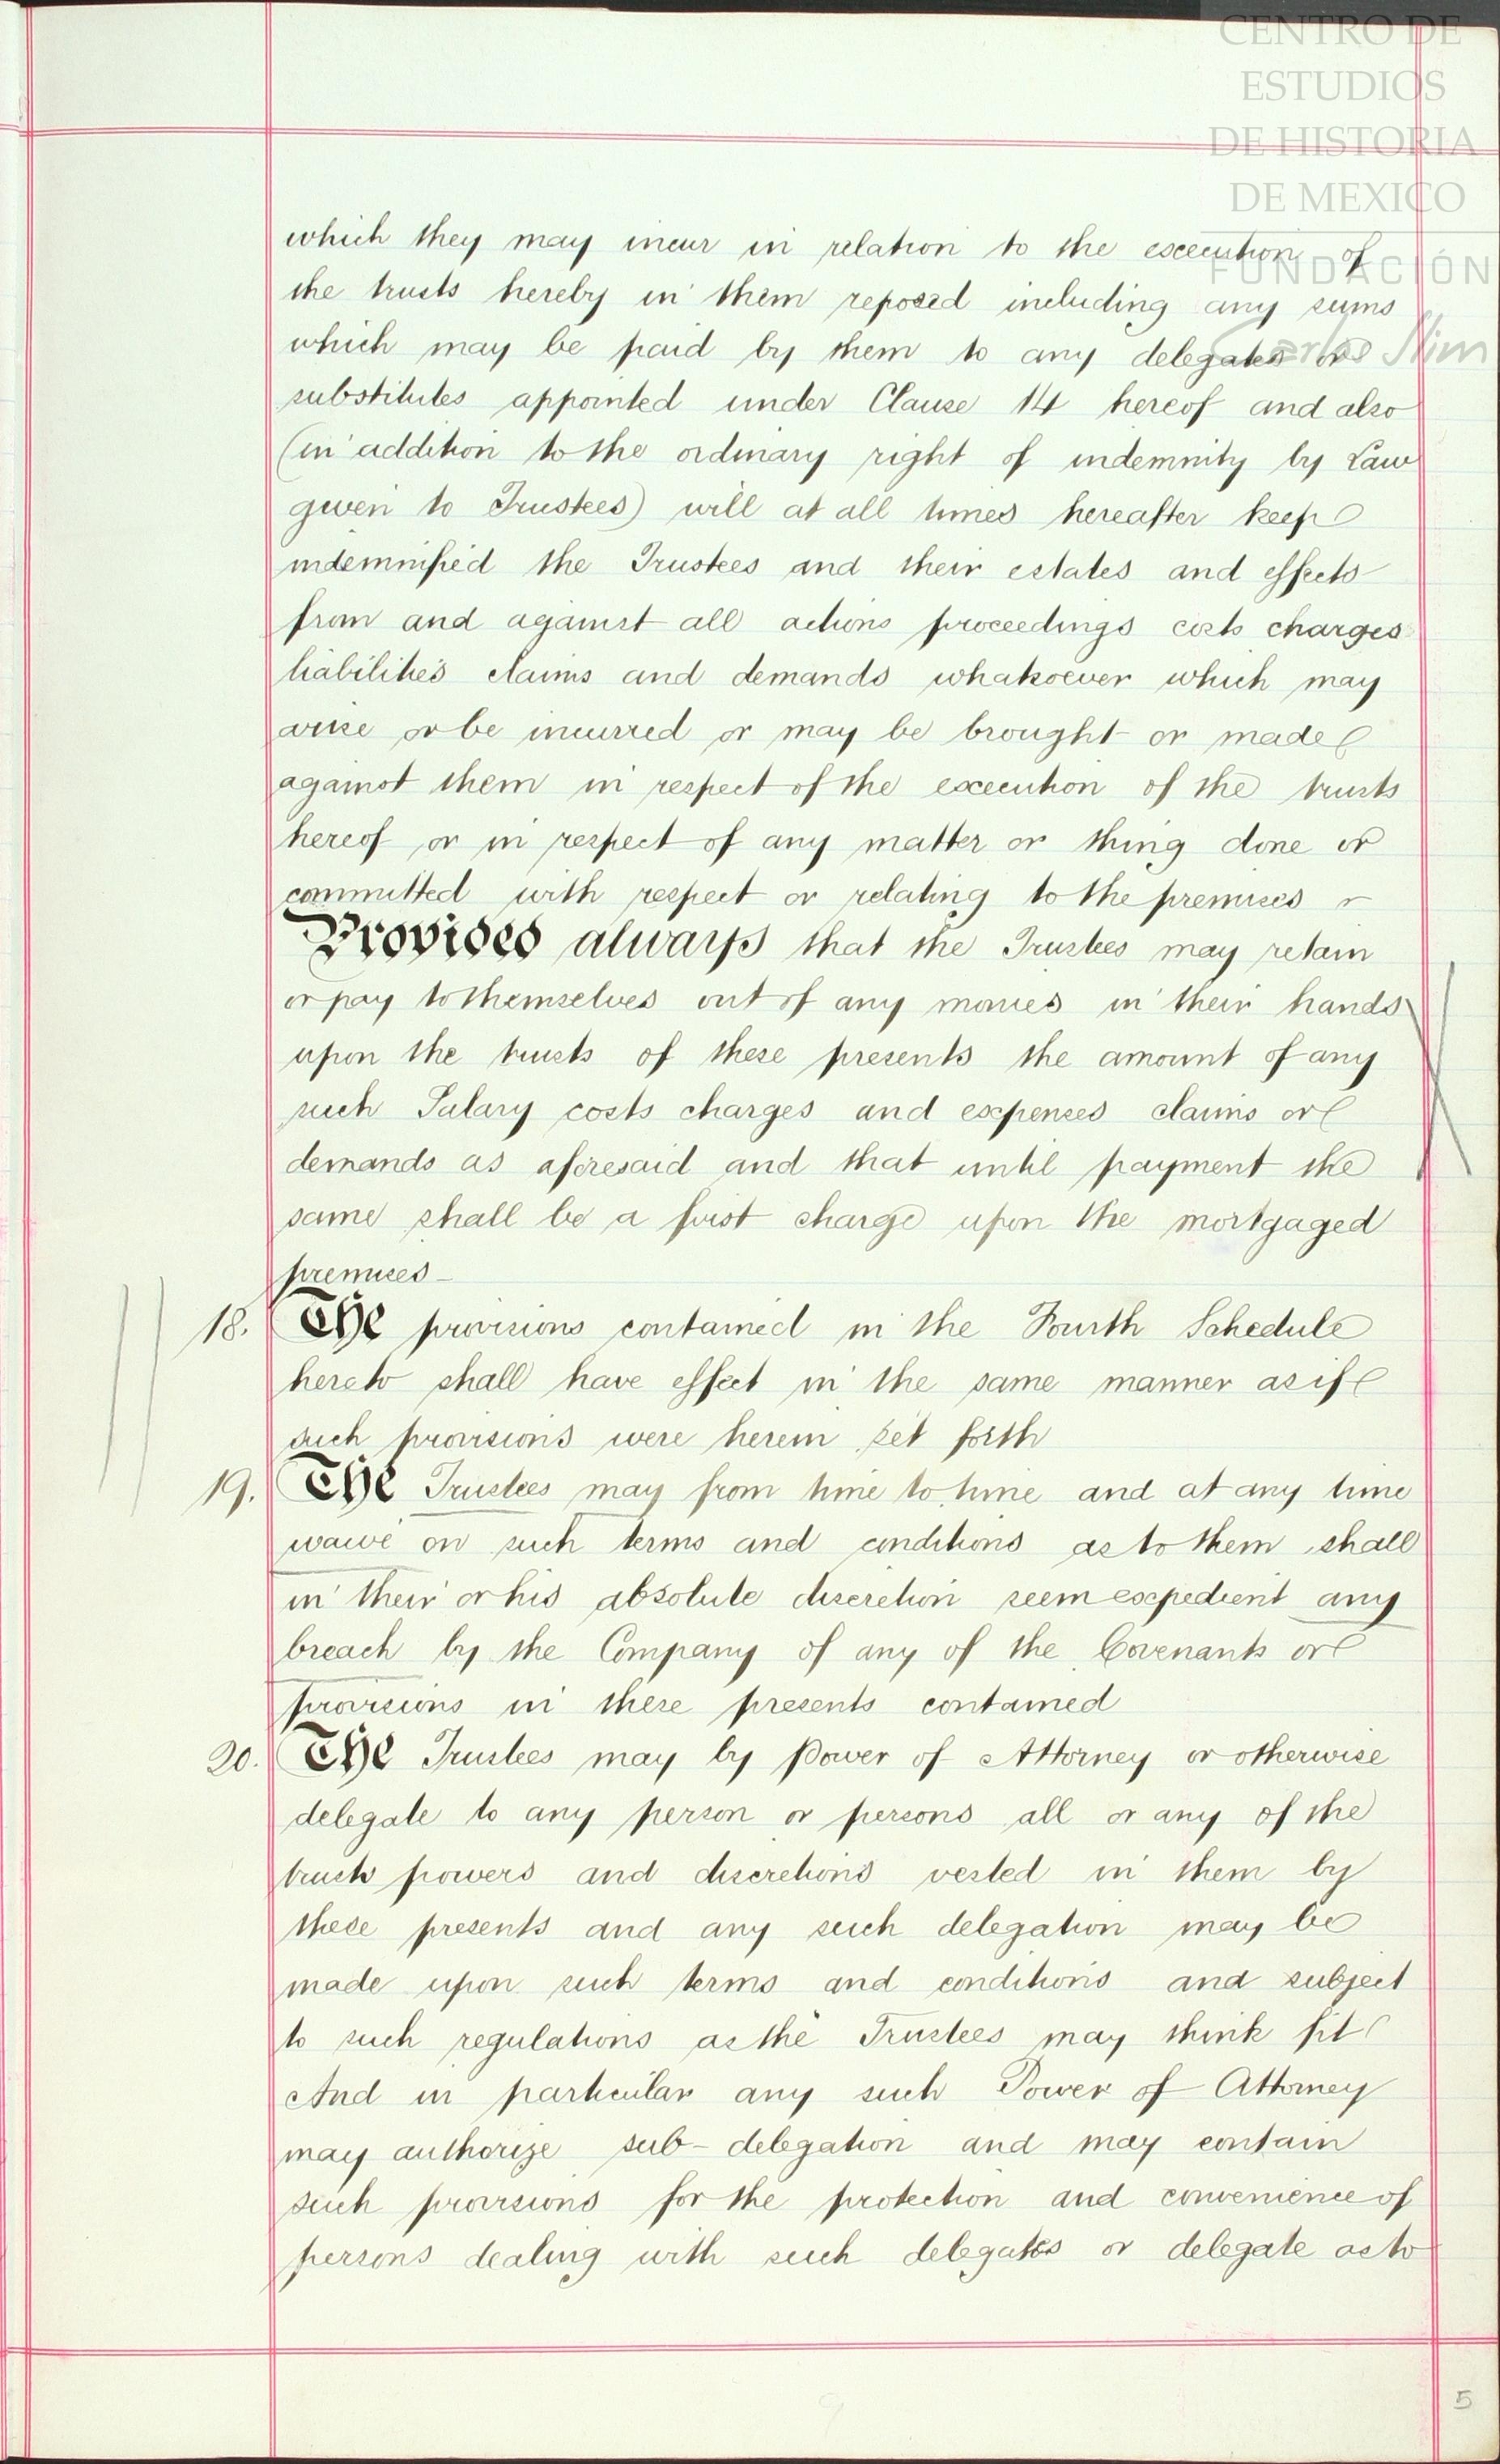 CENTRO DE
ESTUDIOS
DE HISTORIA
DE MEXICO
FUNDACIÓN
Carlos Slim
which they may incur in relation to the execution of
the trusts hereby in them reposed including any sums
which may be paid by them to any delegates or
substitutes appointed under Clause 14 hereof and also
(in addition to the ordinary right of indemnity by Law
given to Trustees) will at all times hereafter keep
indemnified the Trustees and their estates and effects
from and against all actions proceedings costs charges
liabilities claims and demands whatsoever which may
arise or be incurred or may be brought or made
against them in respect of the execution of the trusts
hereof or in respect of any matter or thing done or
committed with respect or relating to the premises
Provided always that the Trustees may retain
or pay to themselves out of any monies in their hands
upon the trusts of these presents the amount of any
such Salary costs charges and expenses claims or
demands as aforesaid and that until payment the
same shall be a first charge upon the mortgaged
premises -
18. The provisions contained in the Fourth Schedule
hereto shall have effect in the same manner as if
such provisions were herein set forth
19. The Trustees may from time to time and at any time
waive on such terms and conditions as to them shall
in their or his absolute discretion seem expedient any
breach by the Company of any of the Covenants or
provisions in these presents contained
20. The Trustees may by Power of Attorney or otherwise
delegate to any person or persons all or any of the
trusts powers and discretions vested in them by
these presents and any such delegation may be
made upon such terms and conditions and subject
to such regulations as the Trustees may think fit
And in particular any such Power of Attorney
may authorize sub-delegation and may contain
such provisions for the protection and convenience of
persons dealing with such delegates or delegate as to
5